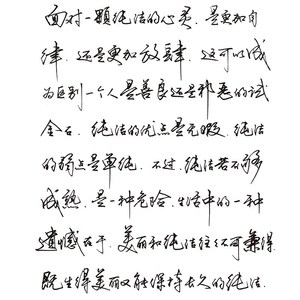 面对一颗纯洁的心灵，是更加自
律，还是更加放肆，这可以成
为区别一个人是善良还是邪恶的试
金石，纯洁的优点是无暇，纯洁
的弱点是单纯，不过，纯洁若不够
成熟，是一种危险，生活中的一种
遗憾在于，美丽和纯洁往往不可兼得
既生得美丽又能保持长久的纯洁.